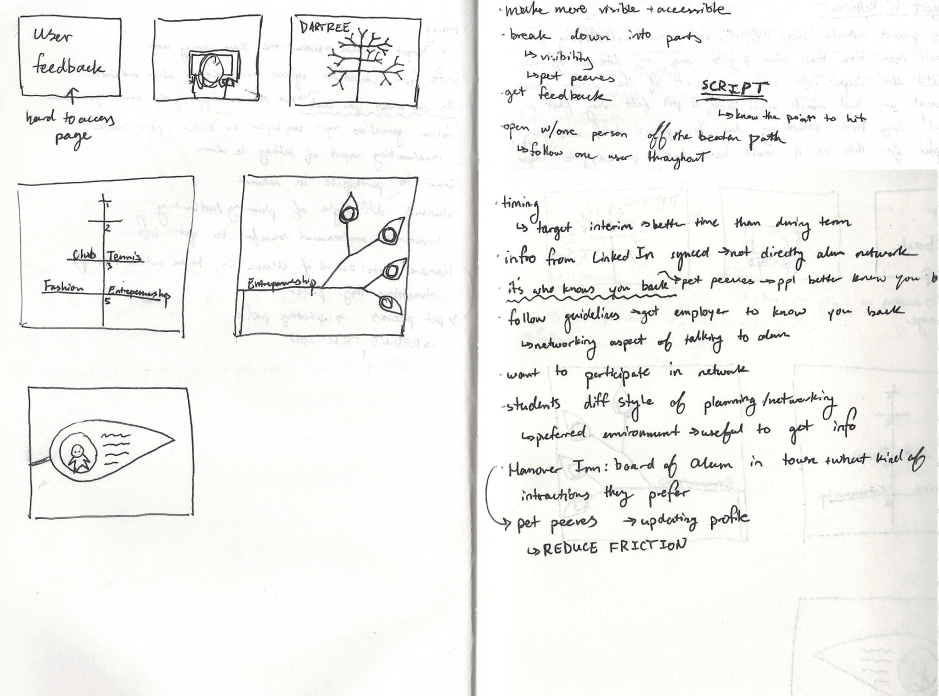 User
feedback
hard to access
page
DARTREE
1
2
Club Tennis
3
Fashion Entrepreneurship
5
Entrepreneurship
· make more visible + accessible
· break down into parts
↳ visibility
↳ pet peeves
· get feedback
SCRIPT
↳ know the points to hit
· open w/one person off the beaten path
↳ follow one user throughout
· timing
↳ target interim → better time than during term
· info from Linked In synced → not directly alum network
· it's who knows you back → pet peeves → ppl better know you b
· follow guidelines → get employer to know you back
↳ networking aspect of talking to alum
· want to participate in network
· students diff style of planning/networking
↳ preferred environment → useful to get info
· Hanover Inn: board of alum in town + what kind of
intractions they prefer
→ pet peeves → updating profile
↳ REDUCE FRICTION